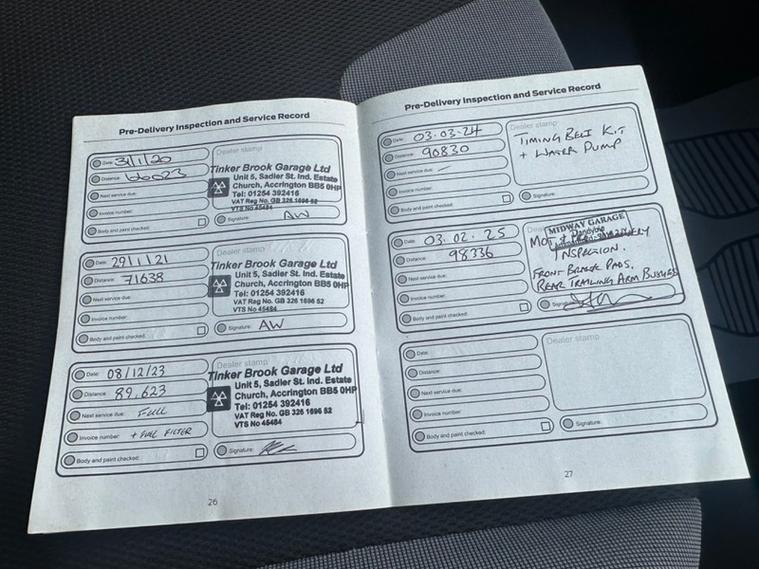 Pre-Delivery Inspection and Service Record
Date: 31/1/20
Distance: 66023
Next service due:
Invoice number:
Body and paint checked:
Dealer stamp
Tinker Brook Garage Ltd
Unit 5, Sadler St. Ind. Estate
Church, Accrington BB5 0HP
Tel: 01254 392416
VAT Reg No. GB 326 1696 52
VTS No 45484
Signature: AW
Date: 29/1/21
Distance: 71638
Next service due:
Invoice number:
Body and paint checked:
Dealer stamp
Tinker Brook Garage Ltd
Unit 5, Sadler St. Ind. Estate
Church, Accrington BB5 0HP
Tel: 01254 392416
VAT Reg No. GB 326 1696 52
VTS No 45484
Signature: AW
Date: 08/12/23
Distance: 89,623
Next service due: FULL
Invoice number: + FUEL FILTER
Body and paint checked:
Dealer stamp
Tinker Brook Garage Ltd
Unit 5, Sadler St. Ind. Estate
Church, Accrington BB5 0HP
Tel: 01254 392416
VAT Reg No. GB 326 1696 52
VTS No 45484
Signature:
26
Pre-Delivery Inspection and Service Record
Date: 03.03.24
Distance: 90830
Next service due: -
Invoice number:
Body and paint checked:
Dealer stamp
TIMING BELT KIT
+ WATER PUMP
Signature:
Date: 03.02.25
Distance: 98336
Next service due:
Invoice number:
Body and paint checked:
MIDWAY GARAGE
MOT +
INSPECTION.
FRONT BRAKE PADS,
REAR TRAILING ARM BUSHES
Date:
Distance:
Next service due:
Invoice number:
Body and paint checked:
Dealer stamp
Signature:
27